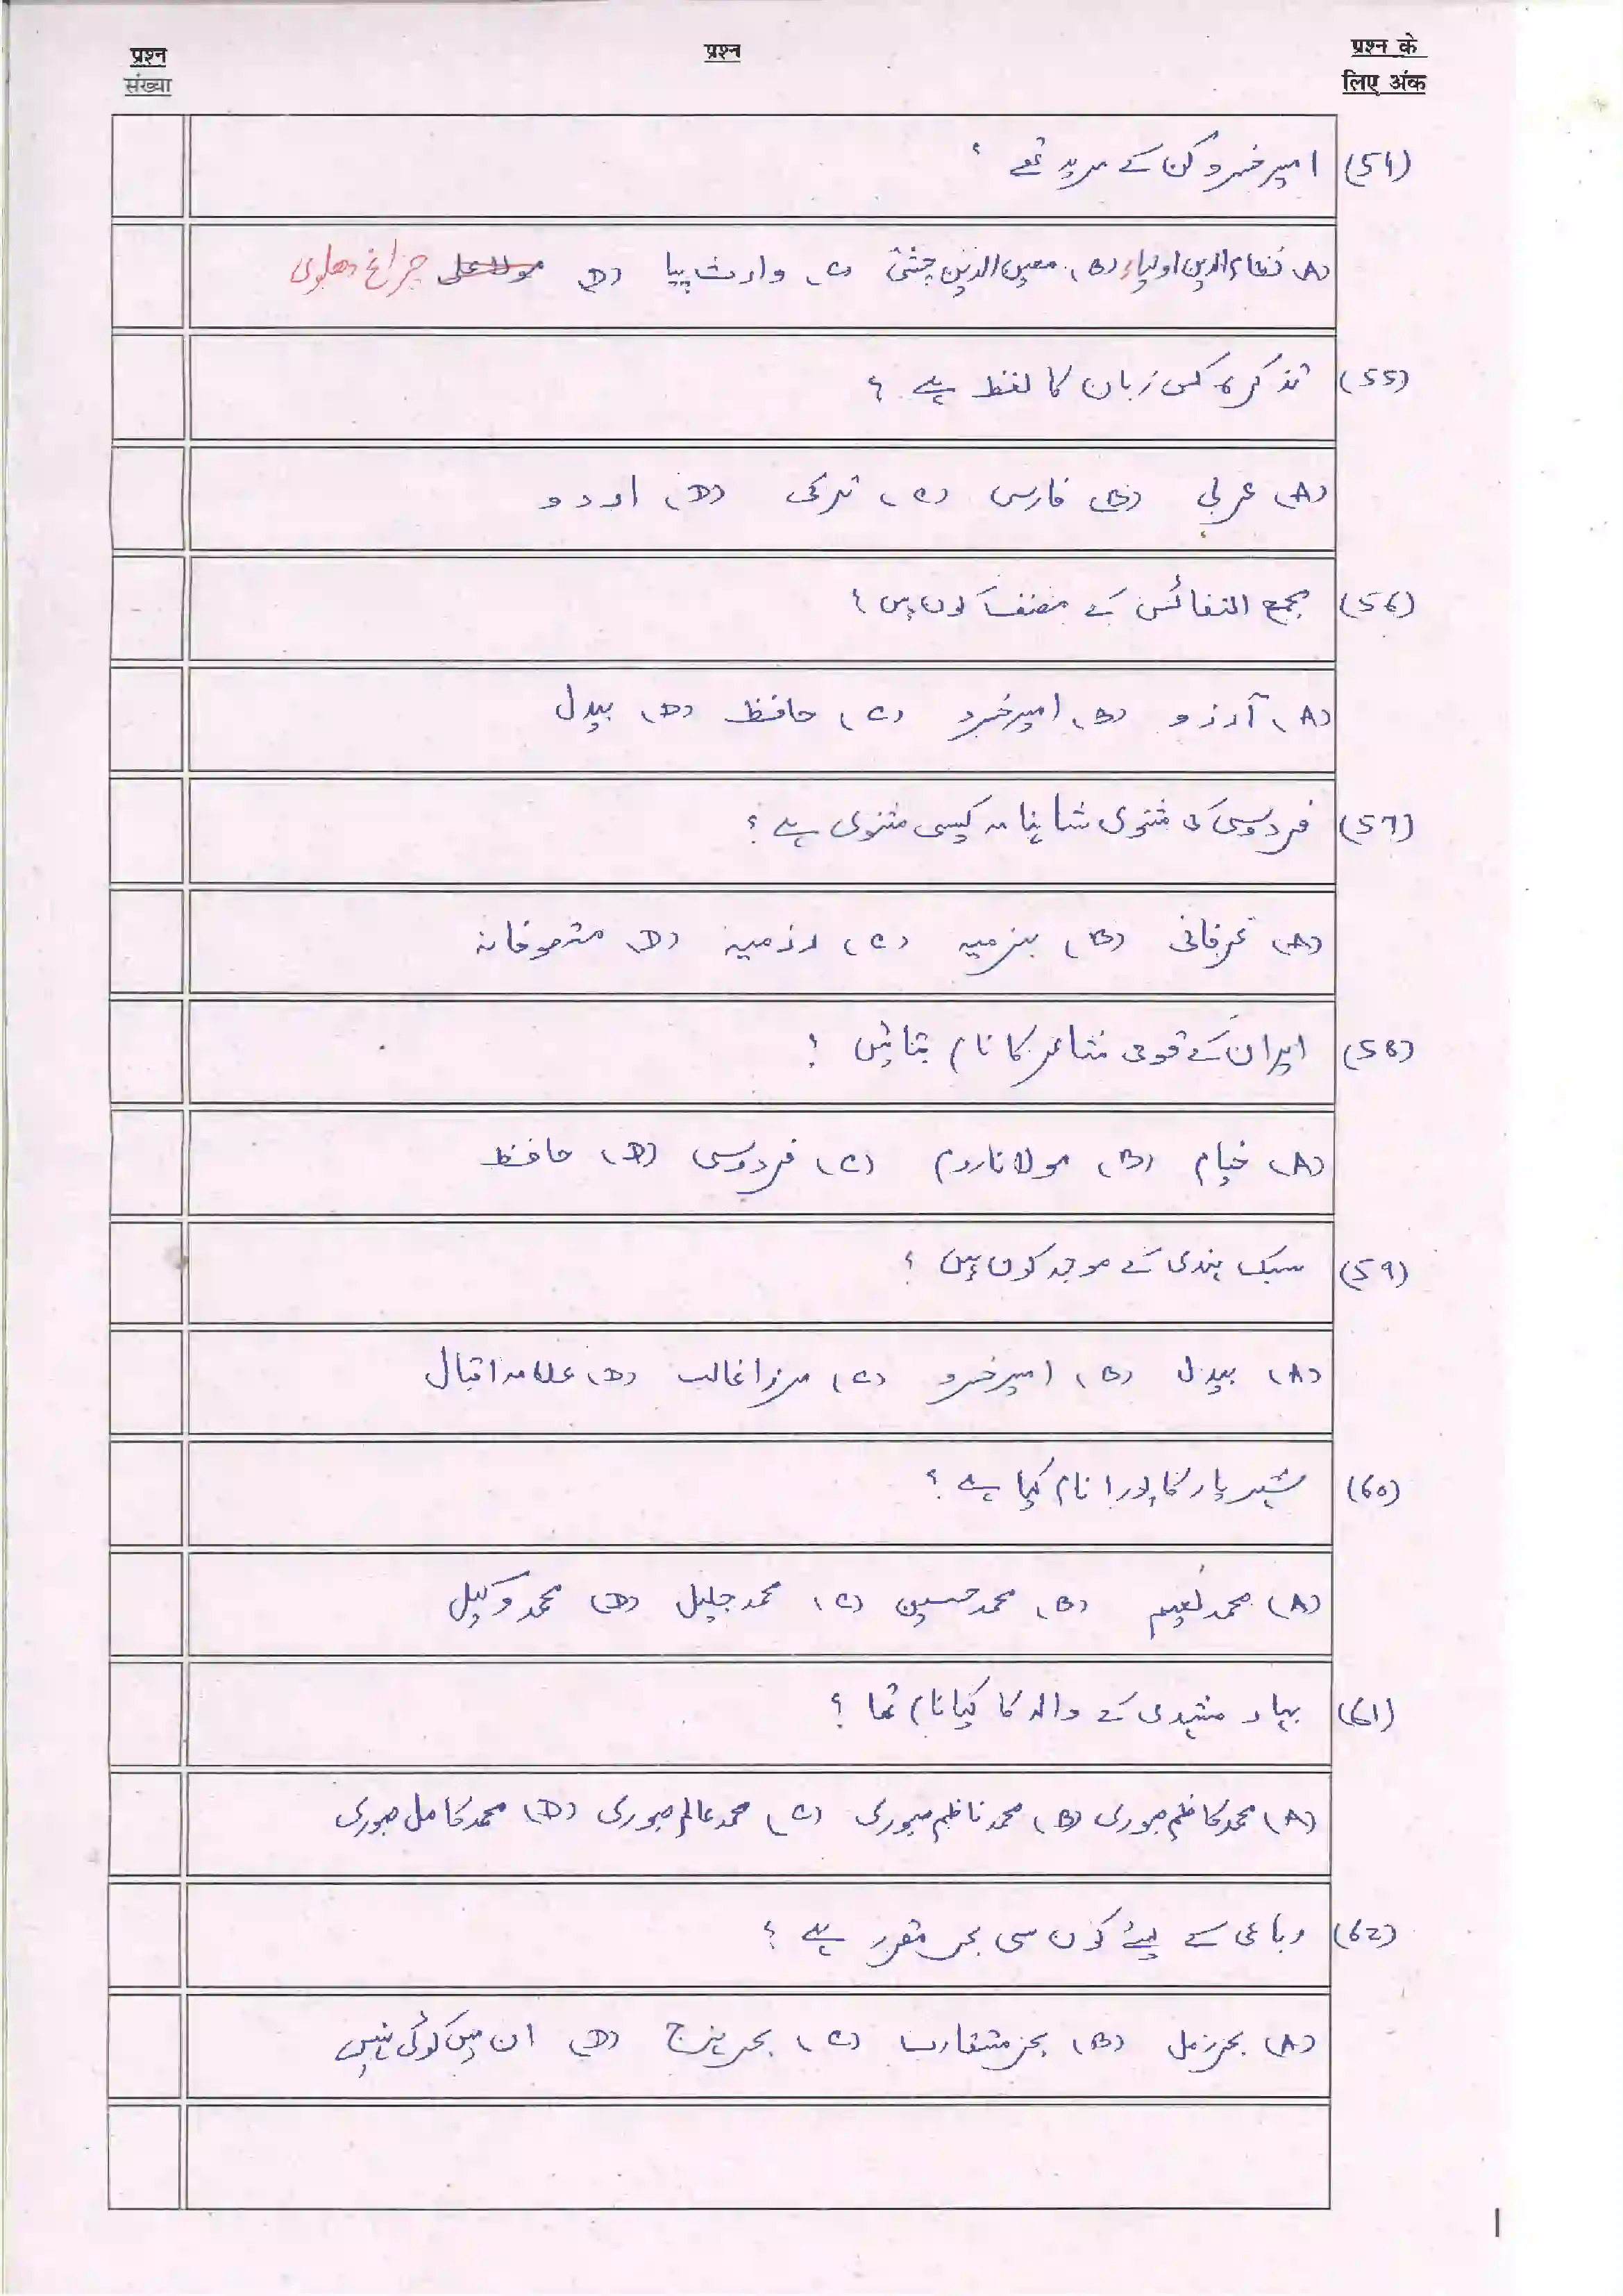 प्रश्न संख्या प्रश्न प्रश्न के लिए अंक
(54) امیر خسرو کن کے مرید تھے ؟
(A) نظام الدین اولیاء (B) معین الدین چشتی (C) وارث پیا (D) مولا علی چراغ دھلوی
(55) تذکرہ کس زبان کا لفظ ہے ؟
(A) عربی (B) فارسی (C) ترکی (D) اردو
(56) مجمع النفائس کے مصنف کون ہیں ؟
(A) آرزو (B) امیر خسرو (C) حافظ (D) بیدل
(57) فردوسی کی مثنوی شاہنامہ کیسی مثنوی ہے ؟
(A) عرفانی (B) بزمیہ (C) رزمیہ (D) متصوفانہ
(58) ایران کے قومی شاعر کا نام بتائیں ؟
(A) خیام (B) مولانا روم (C) فردوسی (D) حافظ
(59) سبک ہندی کے موجد کون ہیں ؟
(A) بیدل (B) امیر خسرو (C) مرزا غالب (D) علامہ اقبال
(60) شہریار کا پورا نام کیا ہے ؟
(A) محمد نعیم (B) محمد حسین (C) محمد جلیل (D) محمد وکیل
(61) بہار مشہدی کے والد کا کیا نام تھا ؟
(A) محمد کاظم صبوری (B) محمد ناظم صبوری (C) محمد عالم صبوری (D) محمد کامل صبوری
(62) رباعی کے لیے کون سی بحر مقرر ہے ؟
(A) بحر رمل (B) بحر متقارب (C) بحر ہزج (D) ان میں کوئی نہیں